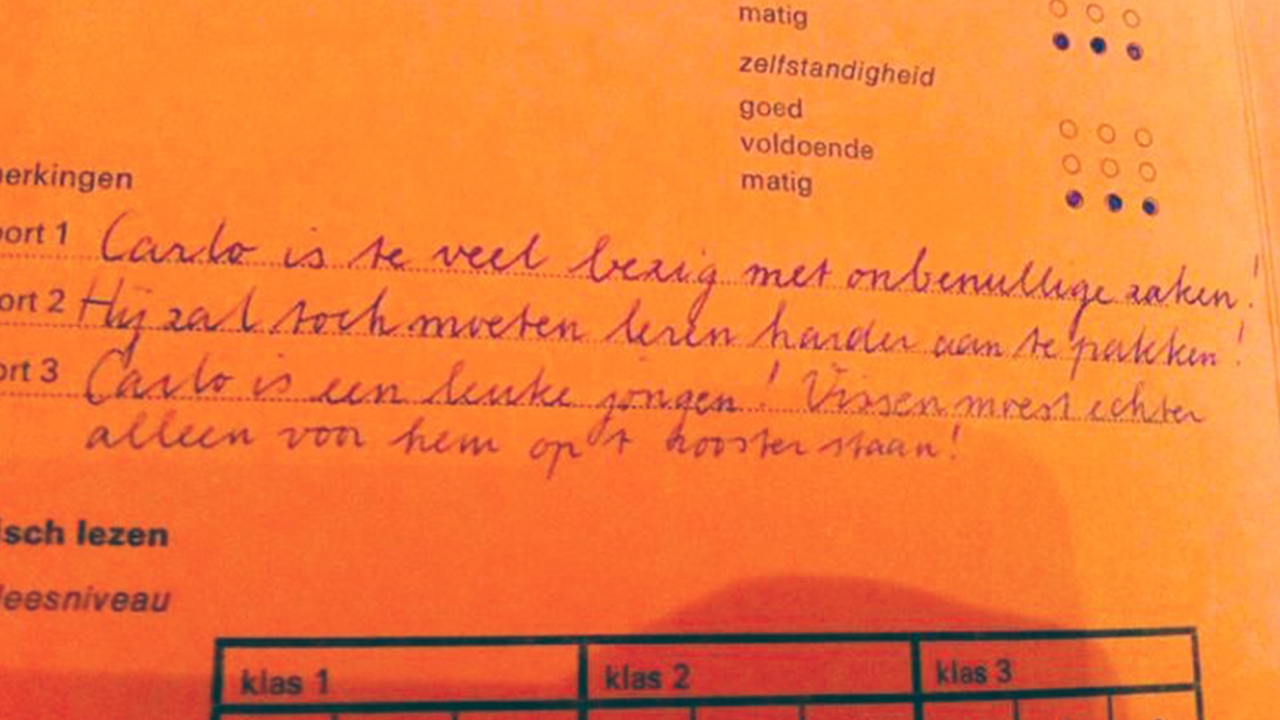 matig
zelfstandigheid
goed
voldoende
matig
erkingen
ort 1 Carlo is te veel bezig met onbenullige zaken!
ort 2 Hij zal toch moeten leren harder aan te pakken!
ort 3 Carlo is een leuke jongen! Vissen moest echter
alleen voor hem op 't rooster staan!
isch lezen
leesniveau
klas 1 klas 2 klas 3